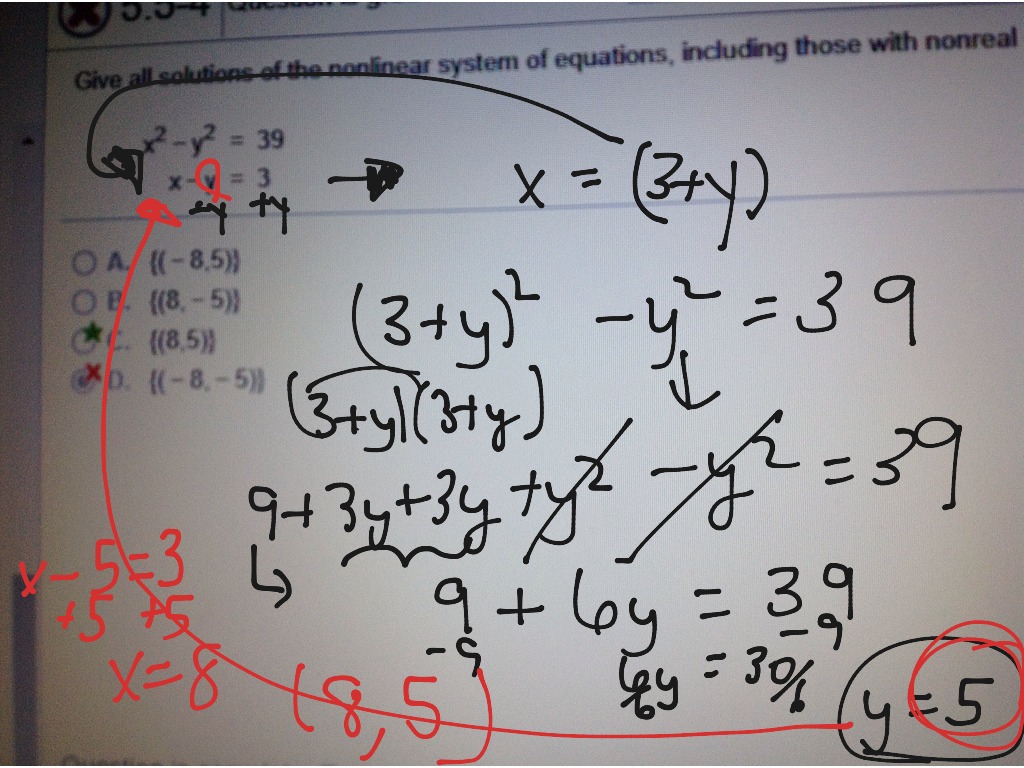 5.5-4
Give all solutions of the nonlinear system of equations, including those with nonreal
x² - y² = 39
x - y = 3
+y +y
x = (3+y)
A. {(-8,5)}
B. {(8,-5)}
C. {(8,5)}
D. {(-8,-5)}
(3+y)² - y² = 39
(3+y)(3+y)
9+3y+3y+y² - y² = 39
9 + 6y = 39
-9 -9
6y/6 = 30/6
y = 5
x - 5 = 3
+5 +5
x = 8
(8,5)